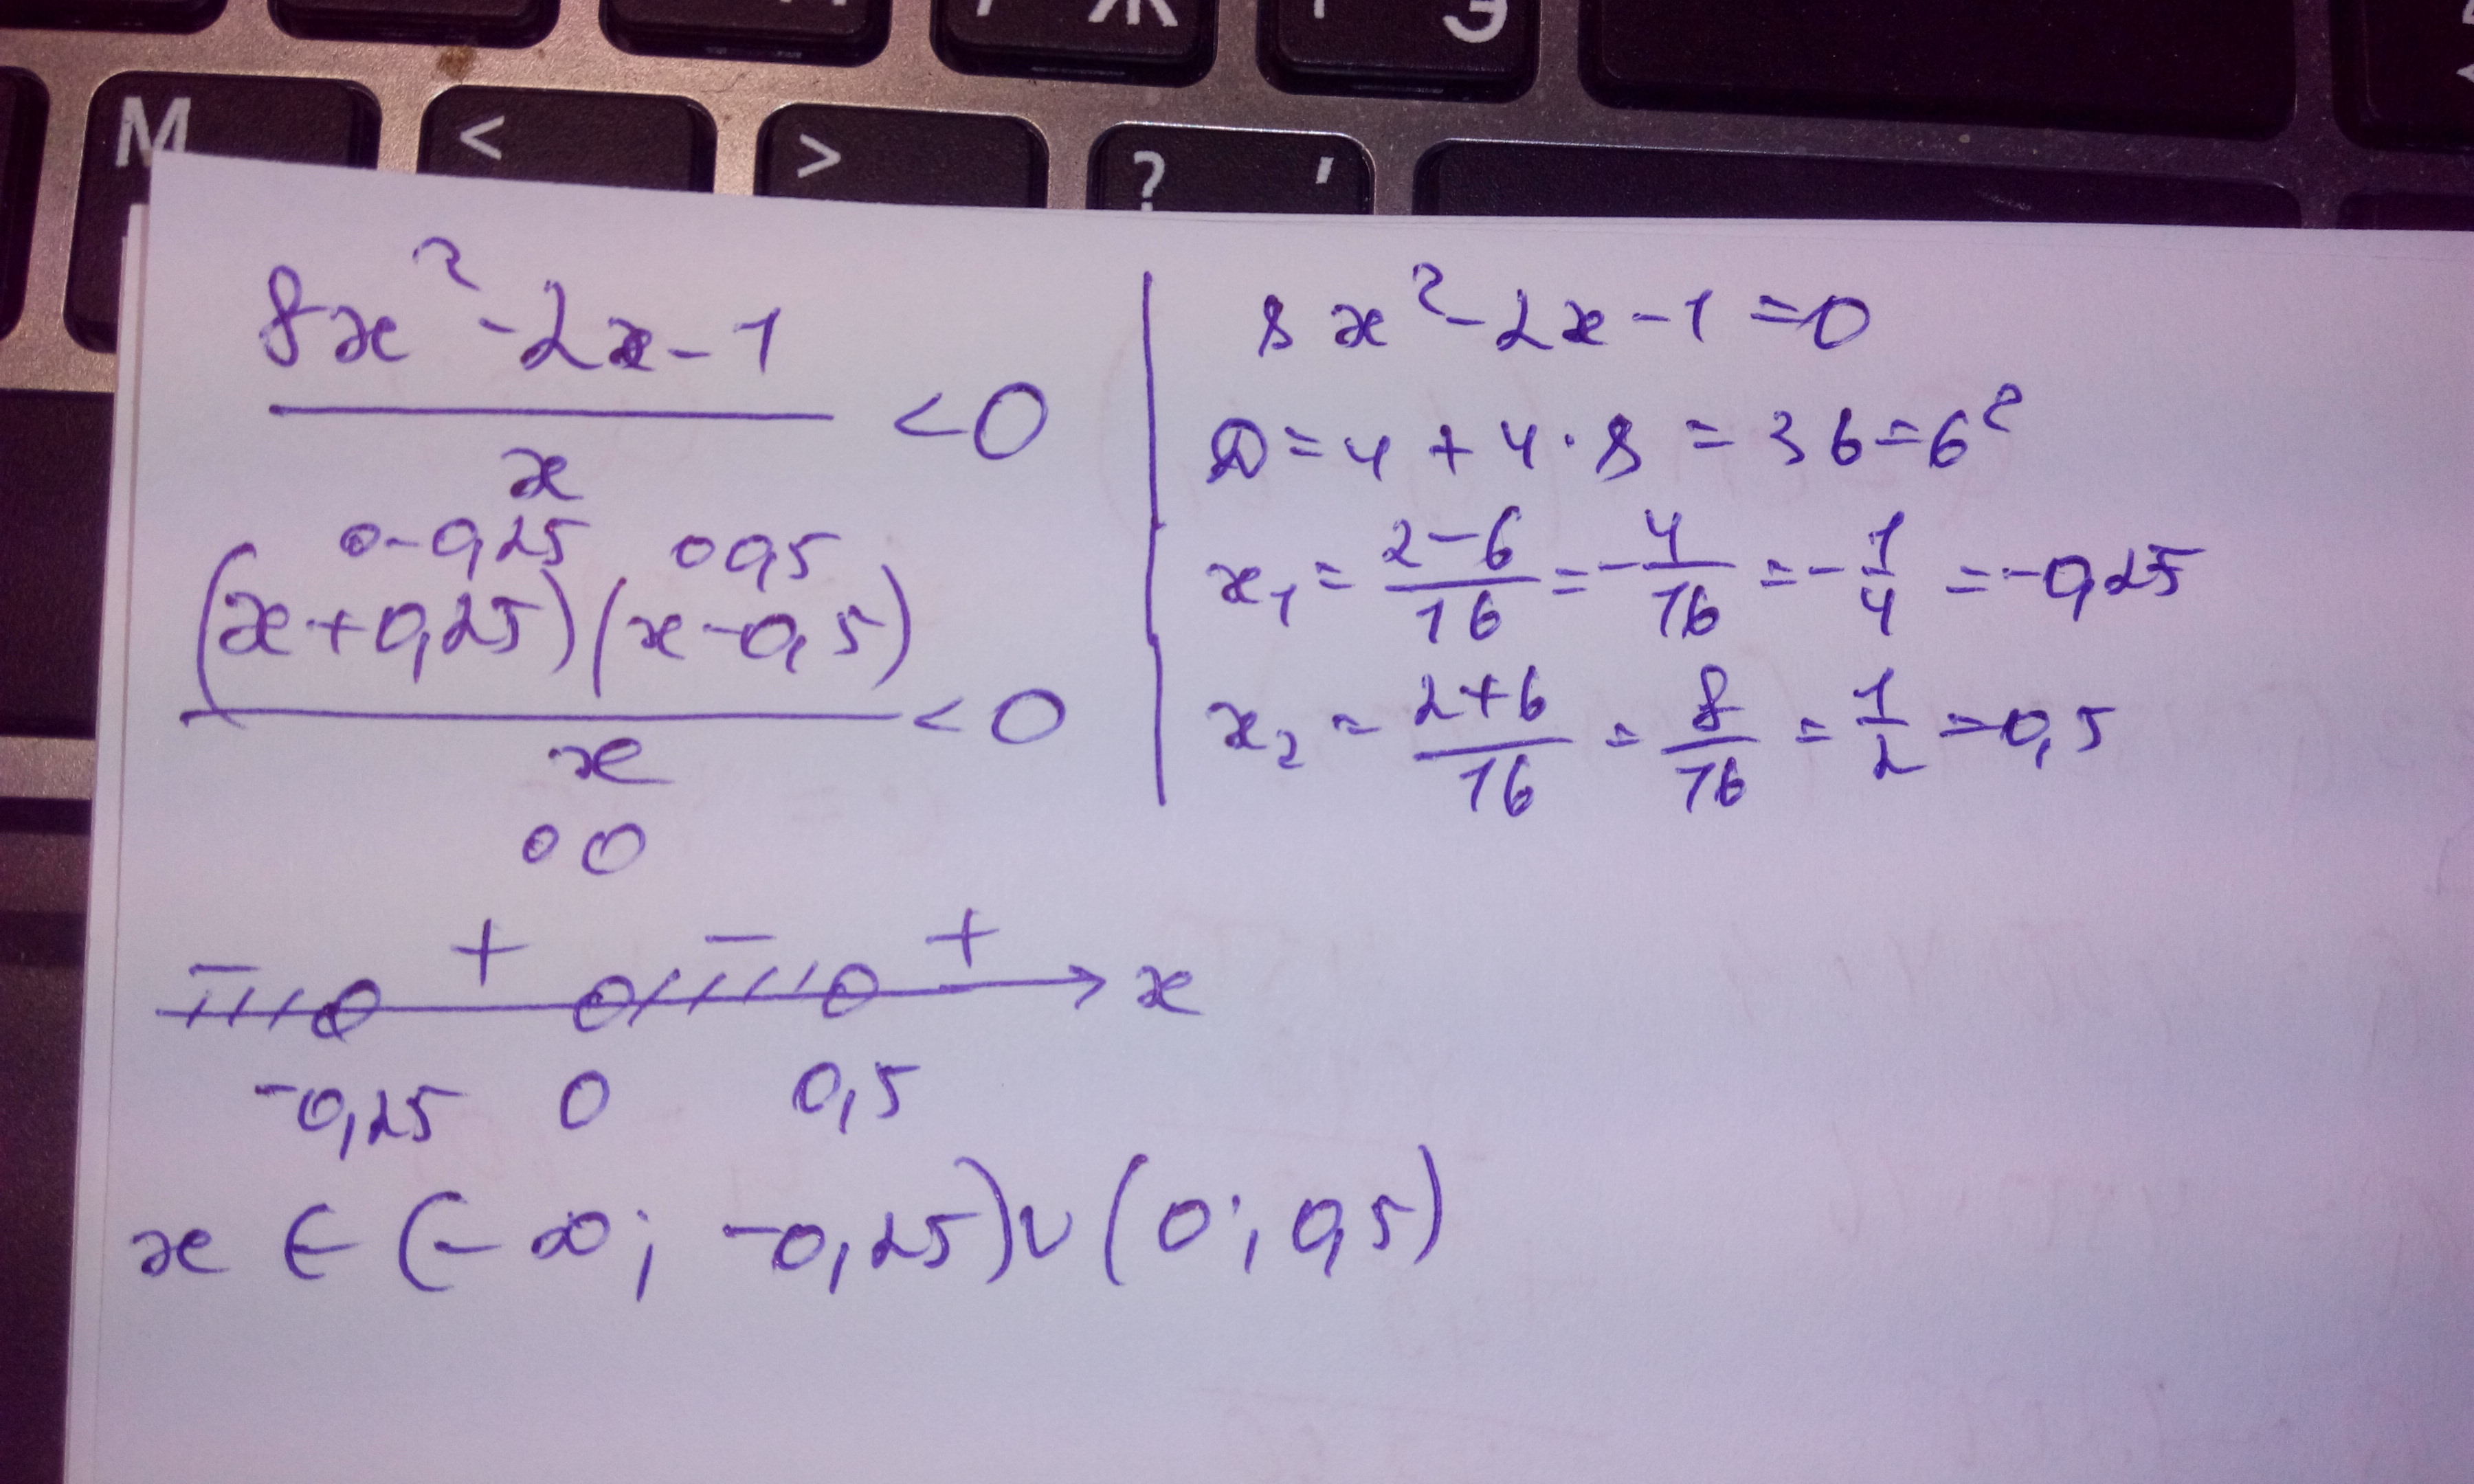 Ж Э
М < > ? ,
8x² - 2x - 1
x
< 0
○ -0,25 ○ 0,5
(x + 0,25)(x - 0,5)
x
< 0
○ 0
8x² - 2x - 1 = 0
D = 4 + 4 · 8 = 36 = 6²
x₁ = 2-6/16 = -4/16 = -1/4 = -0,25
x₂ = 2+6/16 = 8/16 = 1/2 = 0,5
- + - + x
-0,25 0 0,5
x ∈ (-∞; -0,25) ∪ (0; 0,5)